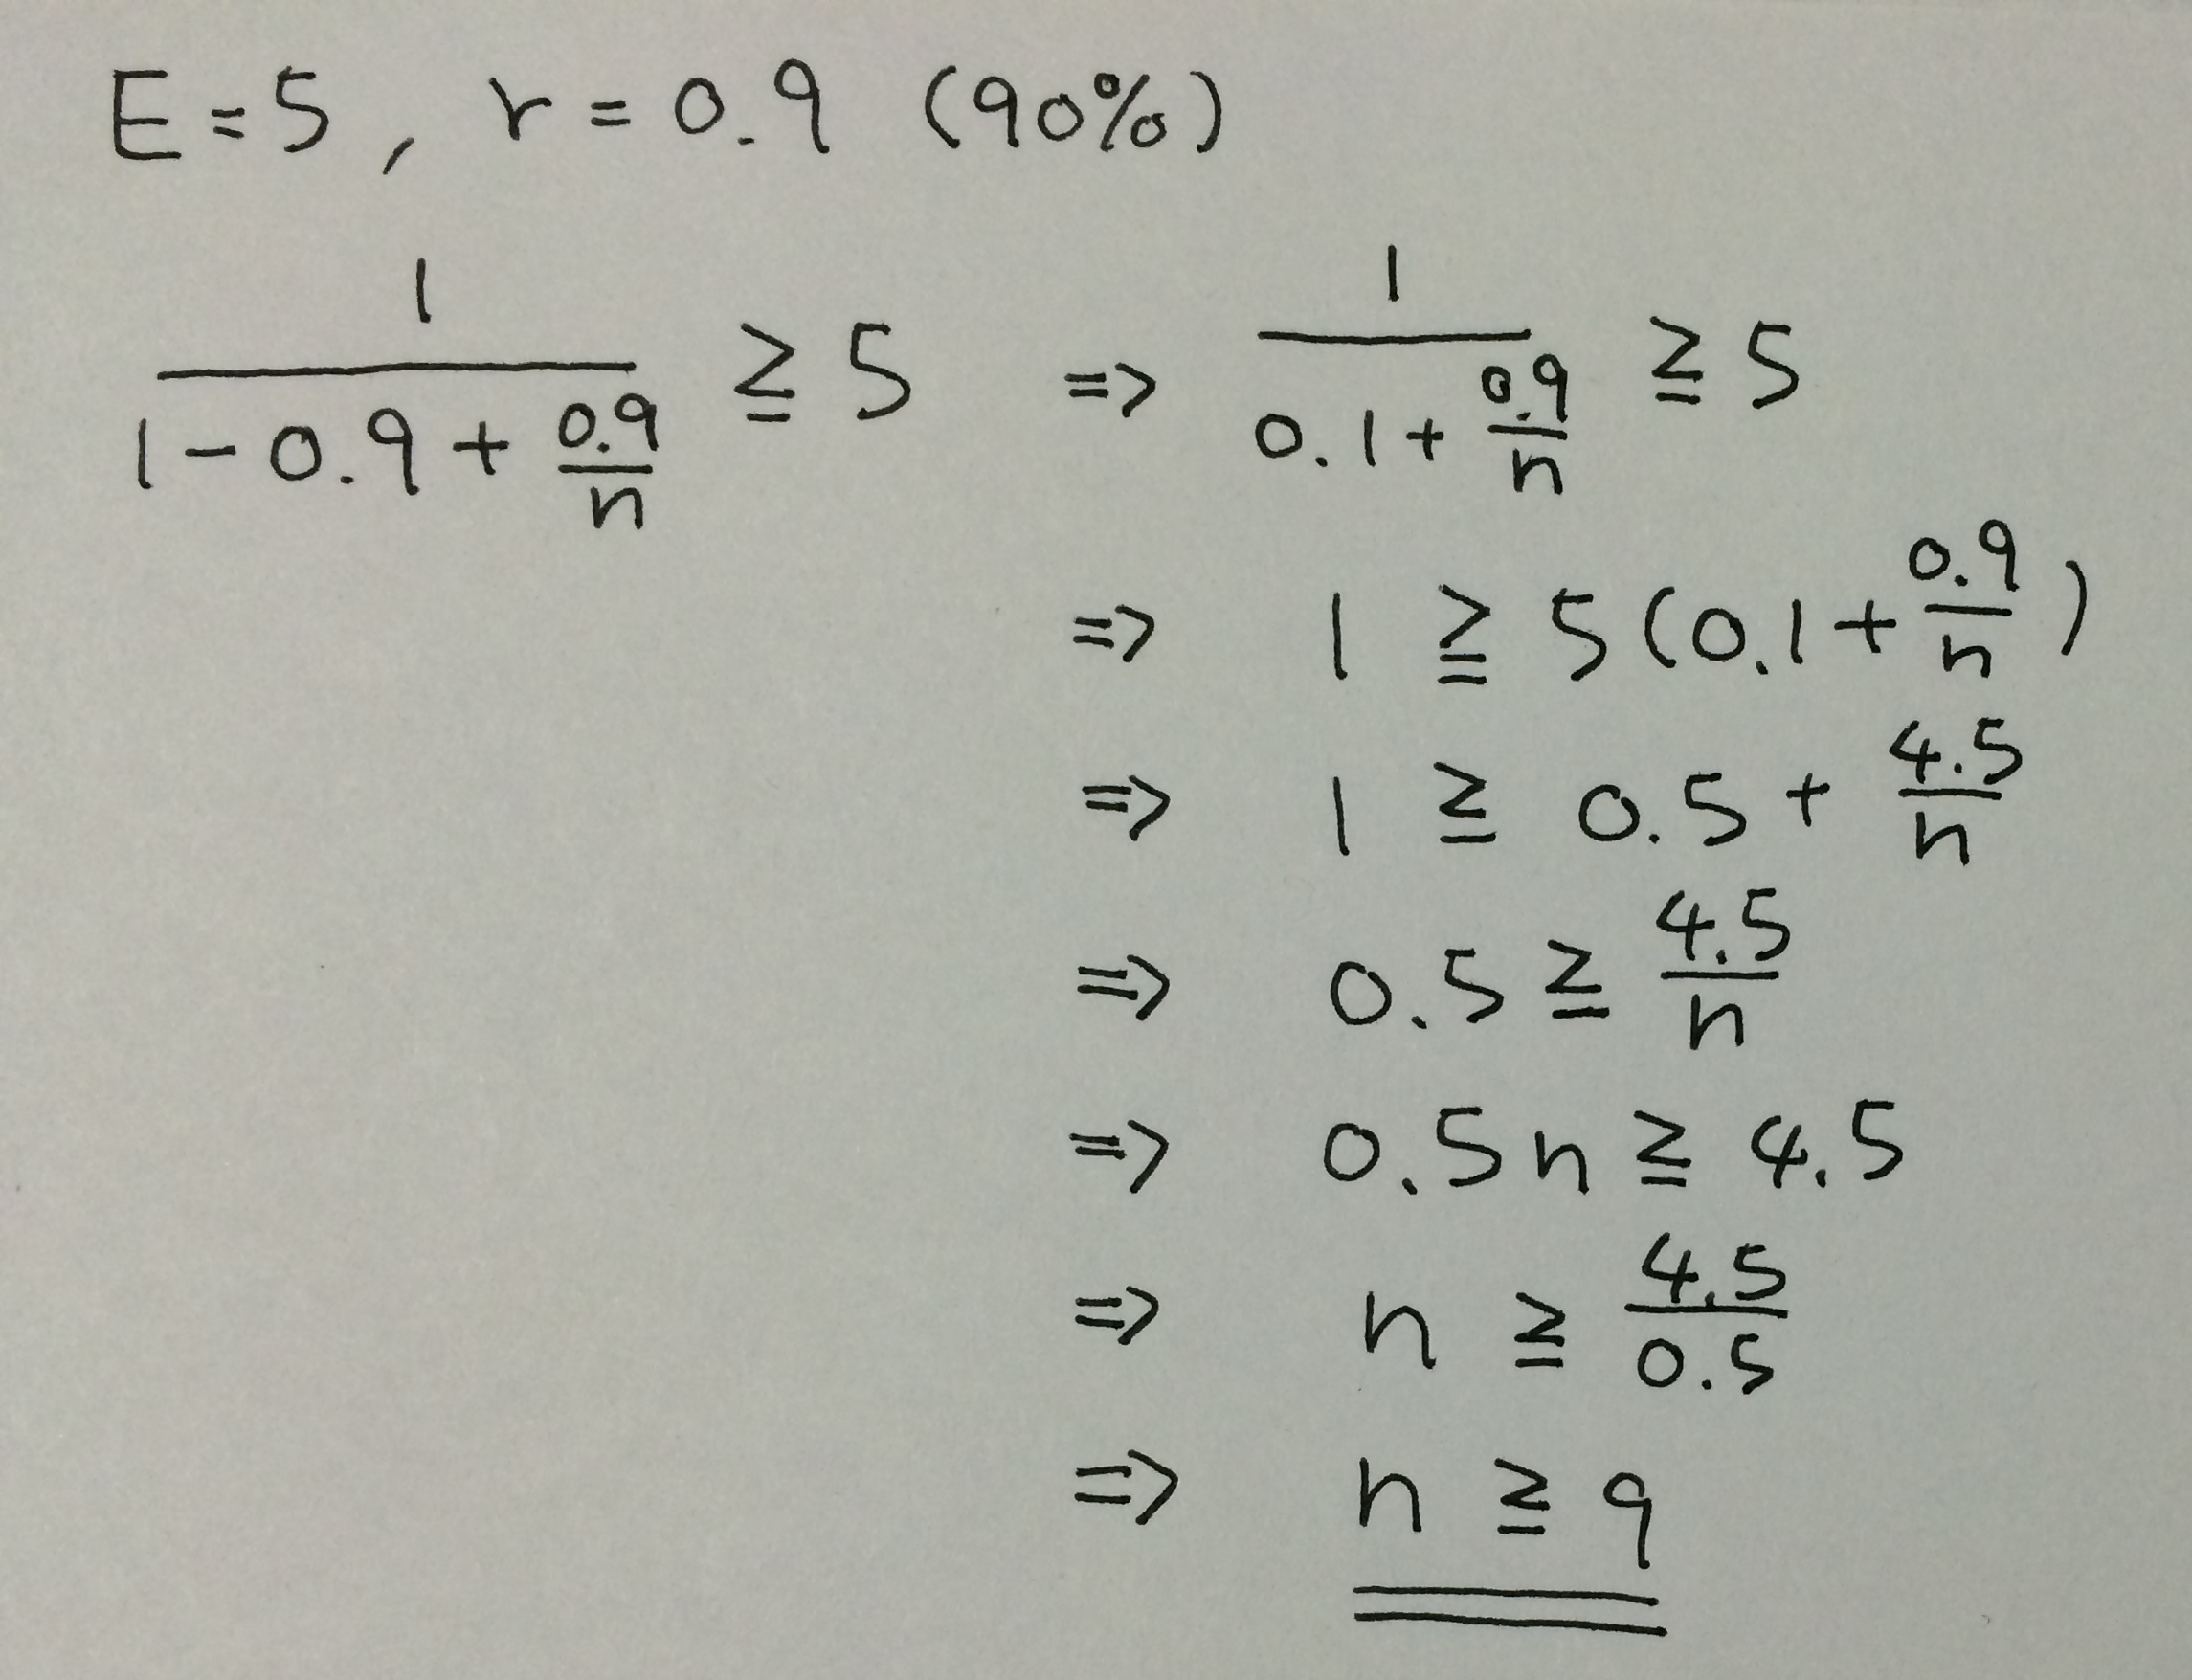 E=5, r=0.9 (90%)
1/(1-0.9+0.9/n) ≧ 5 => 1/(0.1+0.9/n) ≧ 5
=> 1 ≧ 5(0.1+0.9/n)
=> 1 ≧ 0.5+4.5/n
=> 0.5 ≧ 4.5/n
=> 0.5n ≧ 4.5
=> n ≧ 4.5/0.5
=> n ≧ 9